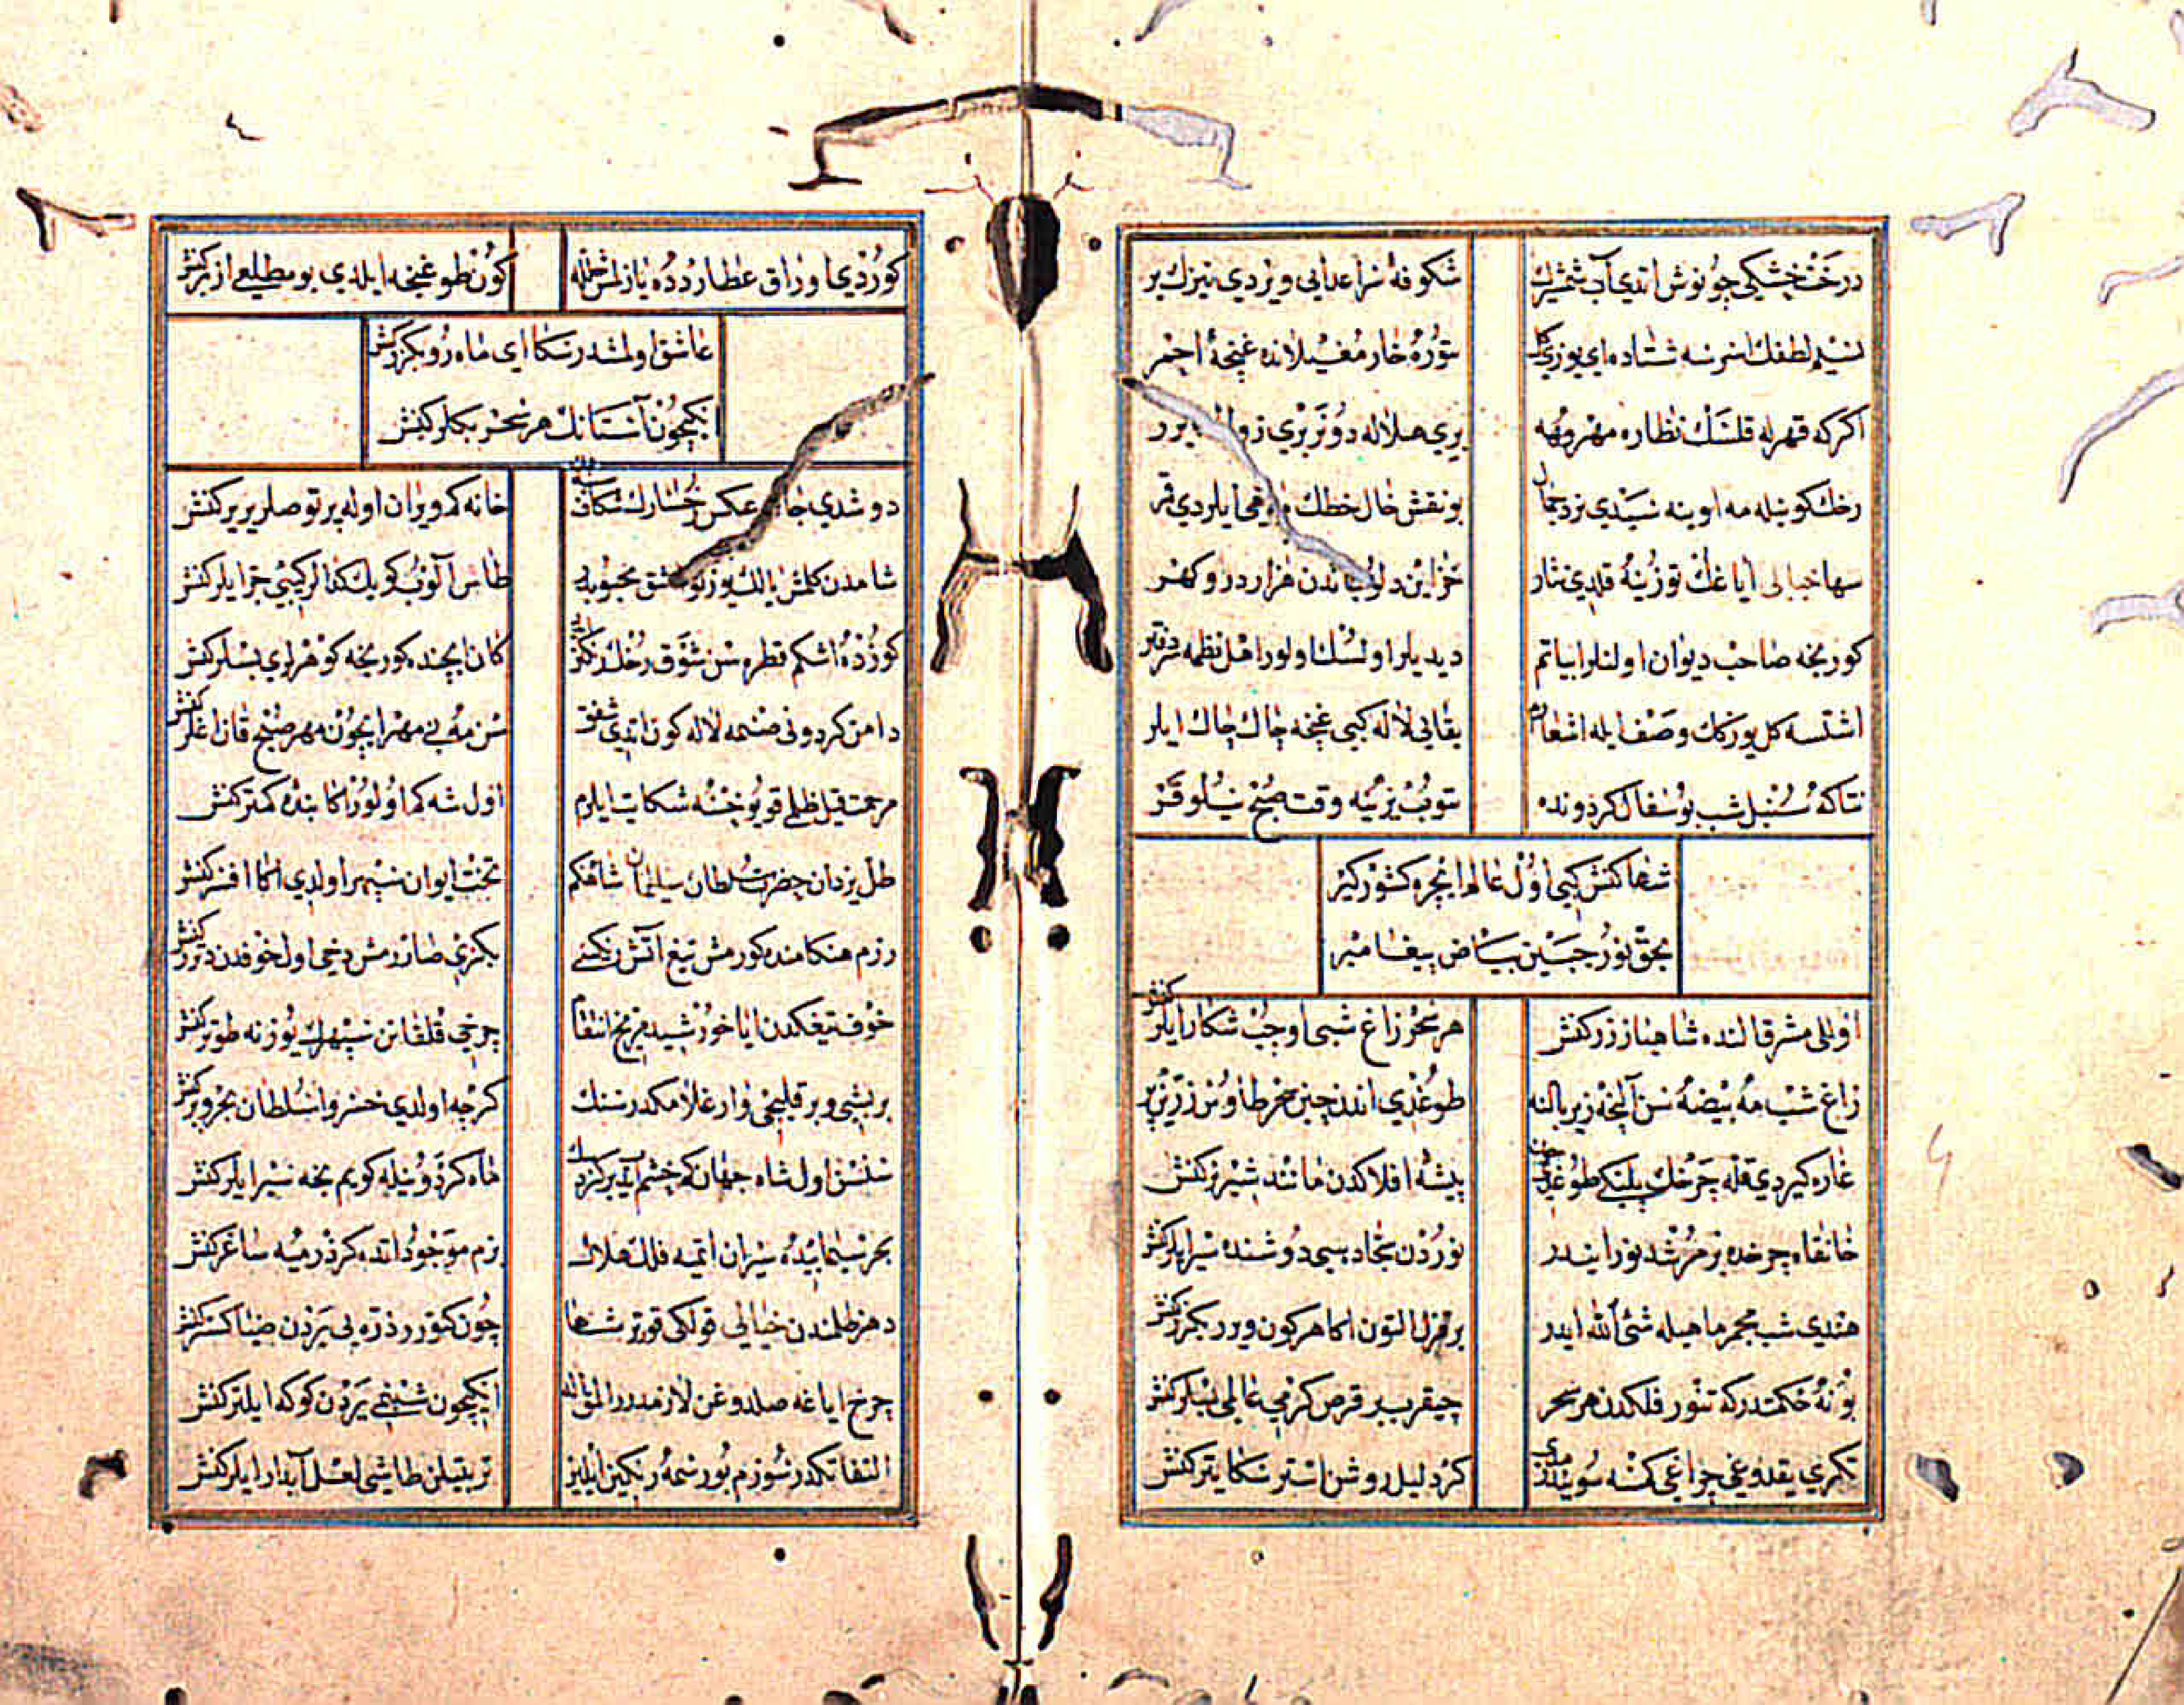 درخت خشکی چو نوش اتدی آب شمشیرك
شکوفهٔ سر اعدایی ویردی نیزك بر
نسیم لطفك اسرسه شتاده ای یوزی کل
بتوره خار مغیلانده غنچهٔ احمر
اکرکه قهرله قلسك نظاره مهر و مهه
بری هلاله دونر بری زواله ایرر
رخك کوینله مه اوینه
بو نقش خال خطك
سها خیالی ایاغك توزینه قلدی نثار
خزاین دل دن هزار در و کهر
کوریخه صاحب دیوان اولنلر ابیاتم
دیدیلر اولسك اولور اهل نظمه سر دفتر
اشتسه کل یوزکك وصف ایله اشعارم
یقایی لاله کبی غنچه چاك چاك ایلر
نتاکه سنبل شب بو سفال کردونده
بتوب یرینه وقت صبح نیلوفر
شها کنش کبی اول عالم ایچره کشورکیر
بحق نور جبین بیاض پیغامبر
اوللی مشرق النده شاهباز زر کنش
هر سحر زاغ شبی اوچب شکار ایلر کنش
زاغ شب مه بیضهٔ سن آلیخه زیر بالنه
طوغدی اندن چین سحر طاوس زرین پر
غاره کیردی قله چرخك پلنکی طوغدی چون
بیشهٔ افلاکدن مانند شیر نر کنش
خانقاه چرخده بر مرشد نورانیدر
نوردن سجاده سی دوشنده سیر ایلر کنش
هندی شب مجمر ماهیله شئ الله ایدر
بر قزل التون اکا هر کون ویرر بکزر کنش
بو نه حکمتدر که تنور فلکدن هر سحر
چیقرب بر قرص کرمی عالمی بسلر کنش
تکری یقدوغی چراغی کمسه سویندرمدی
کر دلیل روشن استرسکا یتر کنش
کوردی اوراق عطاردده یازلمش جمله
کون طوغیخه ایلدی بو مطلعی ازبر کنش
عاشق اولمشدر سکا ای ماه رو بکزر کنش
انکیچون آستانك هر سحر بکلر کنش
دوشدی جانه عکس رخسارك شکاف
خانه کم ویران اوله پرتو صلر یر یر کنش
شامدن کلمش یالك یوزلو عشق محبوبدر
طاش آلوب کویك کدالر کبی جر ایلر کنش
کوزده اشکم قطره سن شوق رخك
کان ایچنده کوریخه کوهرلری بسلر کنش
دامن کردونی صنمه لاله کون اتدی شفق
سن مه بی مهر ایچون مهر صبح قان اغلر کنش
مرحمت قیل ظلمی قو یوخسه شکایت ایلرم
اول شه کم اولور اکا بنده کمتر کنش
ظل یزدان حضرت سلطان سلیمان شاه کم
تخت ایوان سپهر اولدی اکا افسر کنش
رزم هنکامنده کورمش تیغ آتش رنکنی
بکزی صارارمش دخی اول خوفدن دتر کنش
خوف تیغکدن ایا خورشید مریخ انتقام
چرخی قلقانن سپهرك یوزنه طوتر کنش
بر بشی و بر قلیجی وار غلامکدر سنك
کرچه اولدی خسروا سلطان بحر و بر کنش
سنسن اول شاه جهان که
ماه کردونیله کویم یخه سیر ایلر کنش
بحر سیمابیده سیران اتمیه فلك هلال
بزم موجود اتده کر زرمیه ساغر کنش
دهر ظلمندن خیالی قولکی قورتر شها
چون کتورر ذره یی یردن ضیا کستر کنش
چرخ ایاغه صلدوغن لازمدر
انکیچون شبنمی یردن کوکه ایلتر کنش
التفاتکدر سوزم بو رسمه رنکین ایلین
تربیتیلن طاشی لعل آبدار ایلر کنش